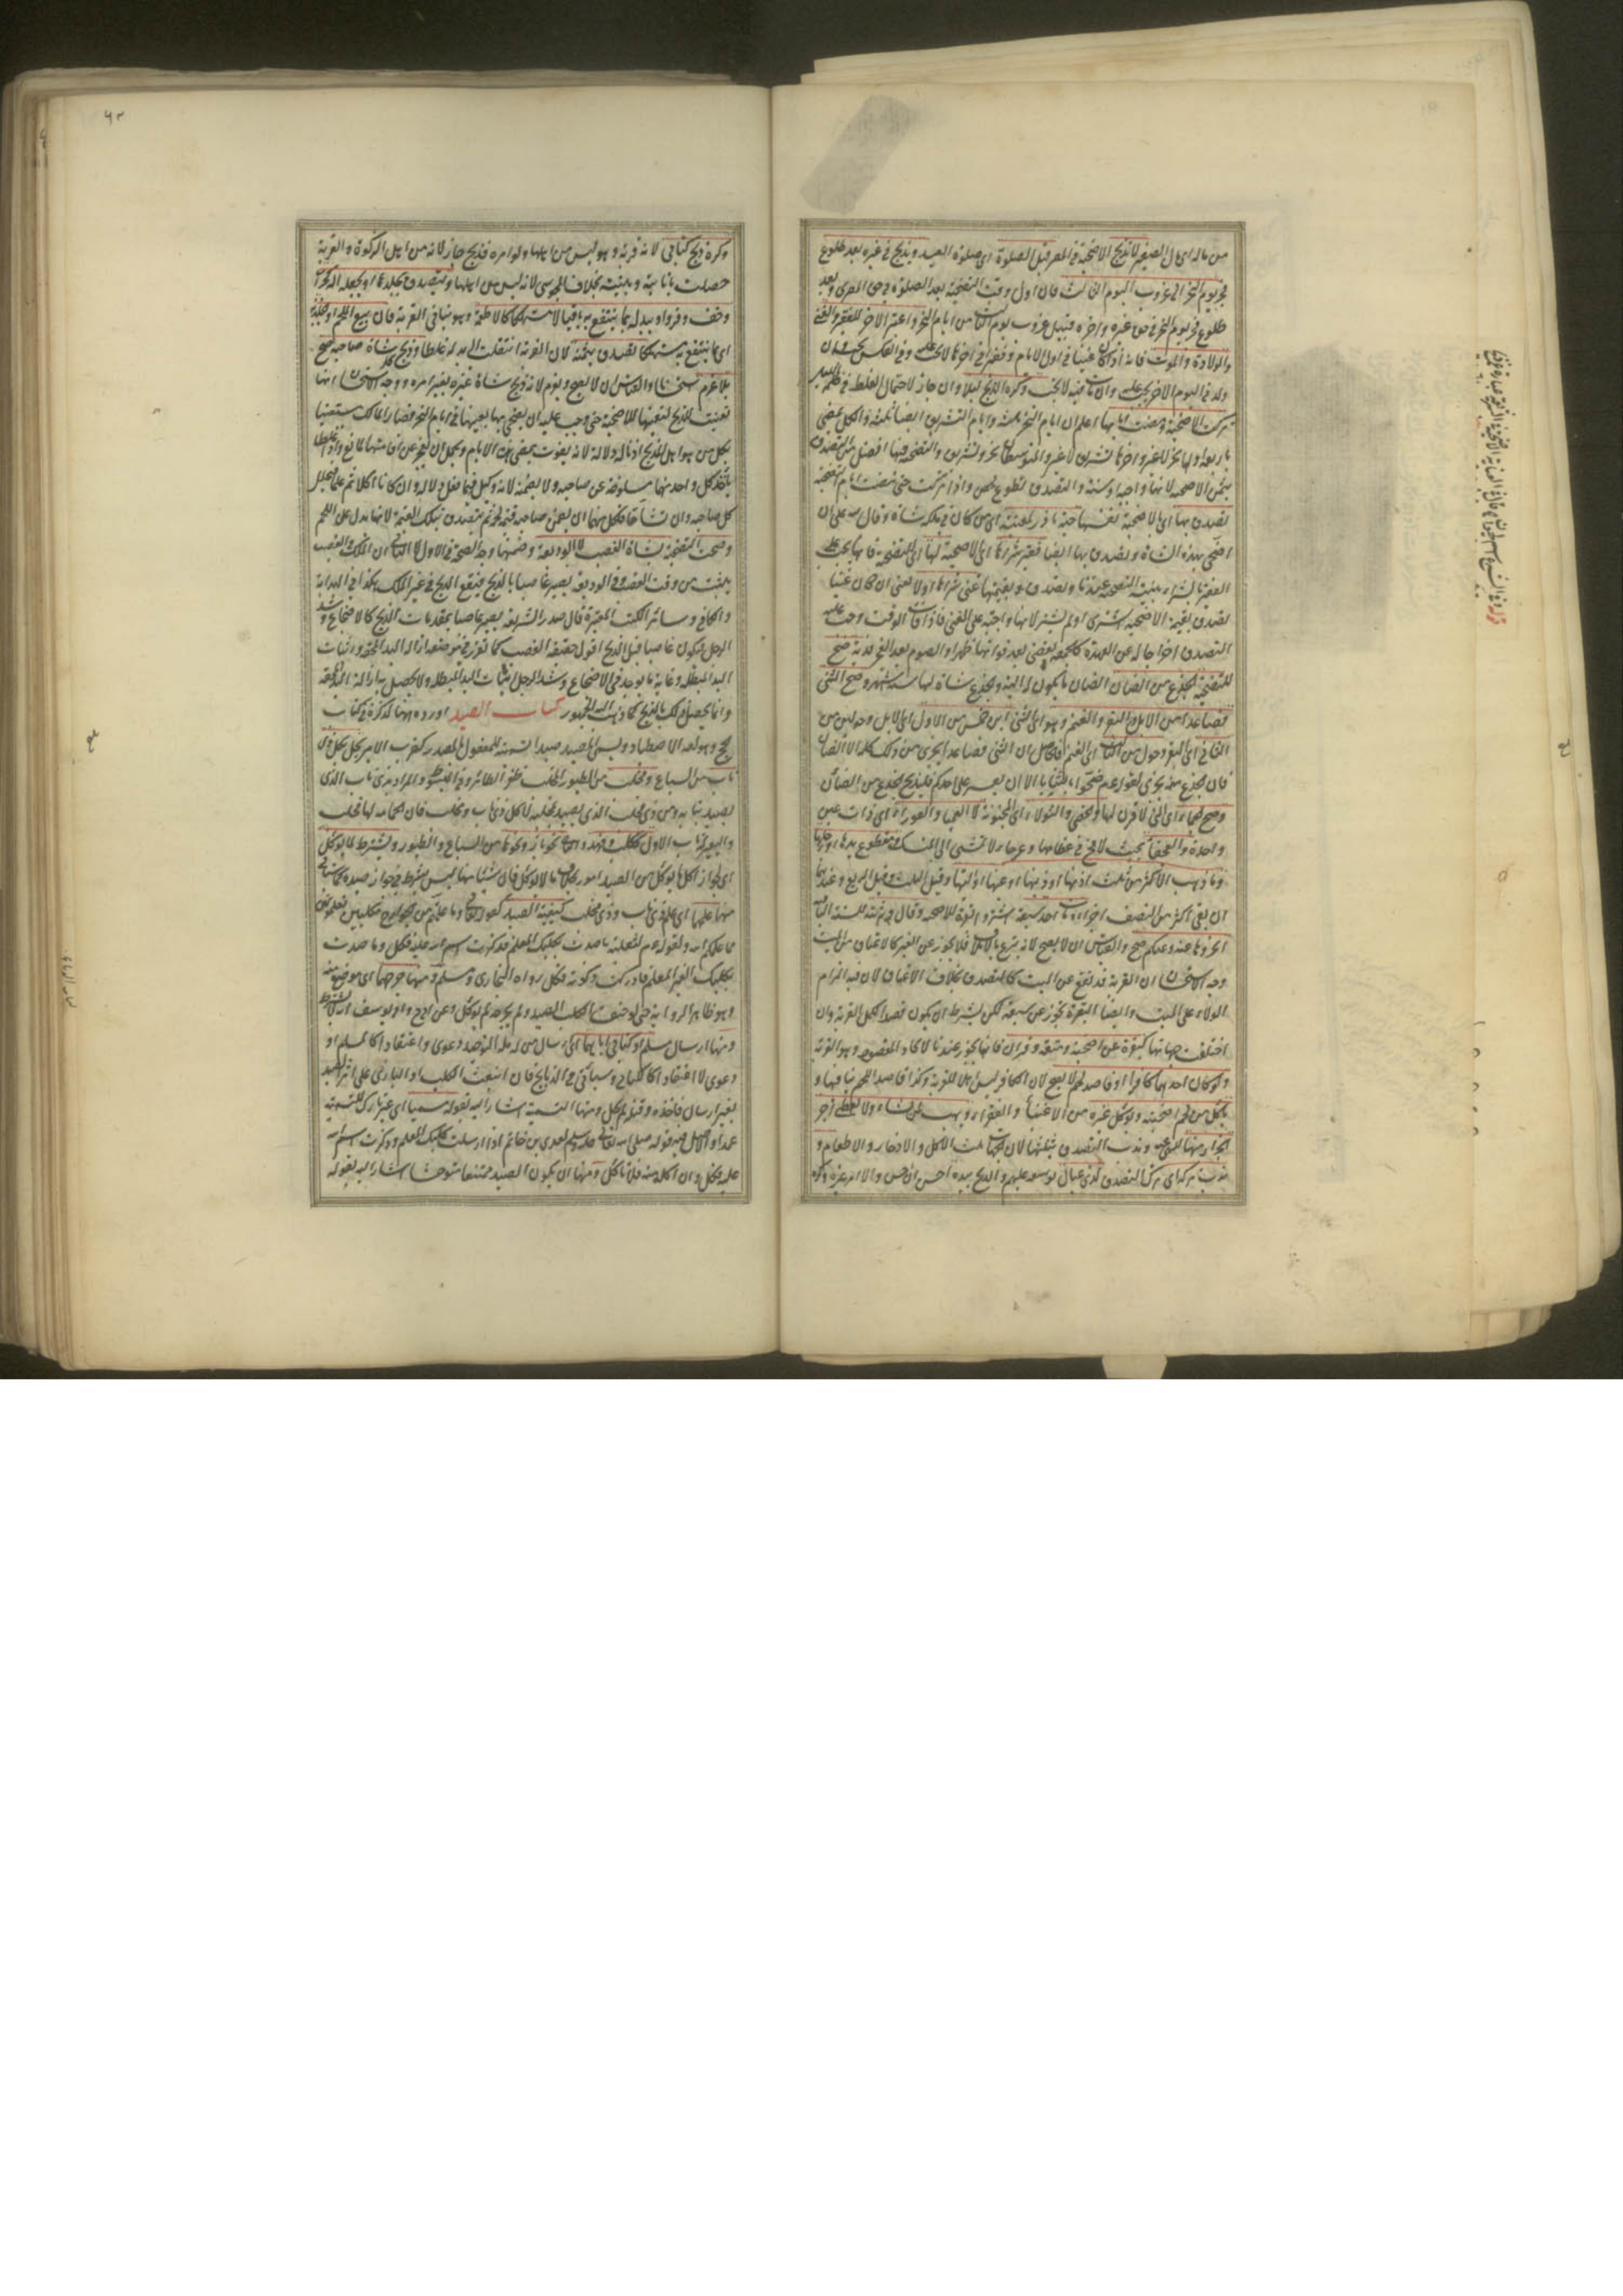 من ماله اى مال الصغير لا تذبح الاضحية فى المصر قبل الصلوة اى صلوة العيد وتذبح فى غيره بعد طلوع
فجر يوم النحر الى غروب اليوم الثالث فان اول وقت التضحية بعد الصلوة فى حق المصرى وبعد
طلوع فجر يوم النحر فى حق غيره واخره قبيل غروب يوم الثالث من ايام النحر واعتبر الاخر للفقير والغنى
والولادة والموت فانه اذا كان غنيا فى اول الايام وفقيرا فى اخرها لا يجب عليه وفى العكس يجب وان
ولد فى اليوم الاخر يجب عليه وان مات فيه لا يجب وكره الذبح ليلا وان جاز لاحتمال الغلط فى ظلمة الليل
تركت الاضحية ومضت ايامها اعلم ان ايام النحر ثلثة وايام التشريق ايضا ثلثة والكل يمضى
باربعة اولها نحر لا غير واخرها تشريق لا غير والمتوسطان نحر وتشريق والتضحية فيها افضل من التصدق
بثمن الاضحية لانها واجبة او سنة والتصدق تطوع محض واذا تركت حتى مضت ايام التضحية
تصدق بها اى الاضحية نفسها حية ناذر لمعينة اى من كان فى ملكه شاة وقال لله على ان
اضحى بهذه الشاة وتصدق بها ايضا فقير شراها اى الاضحية لها اى للتضحية فانها يجب على
الفقير بالشراء بنية التضحية عندنا وتصدق بقيمتها غنى شراها اولا يعنى ان كان غنيا
تصدق بقيمة الاضحية اشترى او لم يشتر لانها واجبة على الغنى فاذا فات الوقت وجب عليه
التصدق اخراجا له عن العهدة كالجمعة تقضى بعد فواتها ظهرا والصوم بعد العجز فدية صح
للتضحية الجذع من الضان الضان ما يكون له الية والجذع شاة لها ستة اشهر وصح الثنى
فصاعدا من الابل والبقر والغنم وهو اى الثنى ابن خمس من الاول اى الابل وحولين من
الثانى اى البقر وحول من الثالث اى الغنم فالحاصل ان الثنى فصاعدا يجزى من ذلك كله الا الضان
فان الجذع منه يجزى لقوله عم ضحوا بالثنايا الا ان يعسر على احدكم فليذبح الجذع من الضأن
وصح الجماء اى التى لا قرن لها والخصى والثولاء اى المجنونة لا العمياء والعوراء اى ذات عين
واحدة والعجفاء بحيث لا مخ فى عظامها وعرجاء لا تمشى الى المنسك ومقطوع يدها او رجلها
وما ذهب الاكثر من ثلث اذنها او ذنبها او عينها او اليتها وقيل الثلث وقيل الربع وعندهما
ان بقى اكثر من النصف اجزاه مات احد سبعة اشتروا بقرة للاضحية وقال ورثته للستة الباقية
اذبحوها عنه وعنكم صح والقياس ان لا يصح لانه تبرع بالاتلاف فلا يجوز عن الغير كالاعتاق من الميت
وجه الاستحسان ان القربة قد تقع عن الميت كالتصدق بخلاف الاعتاق لان فيه الزام
الولاء على الميت وايضا البقرة تجوز عن سبعة لكن بشرط ان يكون قصد الكل القربة وان
اختلفت جهاتها كبقرة عن اضحية ومتعة وقران فانها يجوز عندنا لاتحاد المقصود وهو القربة
ولو كان احدهما كافرا او قاصد لحم لا يصح لان الكافر ليس اهلا للقربة وكذا قاصد اللحم ينافيها و
ياكل من لحم اضحيته ويوكل غيره من الاغنياء والفقراء ويهب لمن يشاء ولا يعطى اجر
الجزار منها للنهى عنه وندب التصدق بثلثها لان الجهات ثلث الاكل والادخار والاطعام و
ندب تركه اى ترك التصدق لذى عيال توسعة عليهم والذبح بيده احسن ان حسن والا امر غيره وكره
وكره ذبح كتابى لانه قربة وهو ليس من اهلها ولو امره فذبح جاز لانه من اهل الزكوة والقربة
حصلت بانابته ونيته بخلاف المجوسى لانه ليس من اهلها ويتصدق بجلدها او يجعله آلة كجراب
وخف وفرو او يبدله بما ينتفع به باقيا لا مستهلكا كالاطعمة وهو ينافى القربة فان بيع اللحم او الجلد به
اى بما ينتفع به مستهلكا تصدق بثمنه لان القربة انتقلت الى بدله غلطا وذبح كل شاة صاحبه صح
بلا غرم استحسانا والقياس ان لا يصح ويغرم لانه ذبح شاة غيره بغير امره ووجه الاستحسان انها
تعينت للذبح لتعينها للاضحية حتى وجب عليه ان يضحى بها بعينها فى ايام النحر فصار المالك مستعينا
بكل من هو اهل للذبح اذنا له دلالة لانه يفوت بمضى هذه الايام ويحمل ان يعجز عن اقامتها لمانع واذا غلطا
ياخذ كل واحد منهما مسلوخة عن صاحبه ولا يضمنه لانه وكيل فيما فعل دلالة وان كانا اكلا ثم علما فليحلل
كل صاحبه وان تشاحا فلكل منهما ان يضمن صاحبه قيمة لحمه ثم يتصدق بتلك القيمة لانها بدل عن اللحم
وصحت التضحية بشاة الغصب لا الوديعة وضمنها وجه الصحة فى الاول لا الثانى ان الملك فى الغصب
يثبت من وقت الغصب وفى الوديعة يصير غاصبا بالذبح فيقع الذبح فى غير الملك هكذا فى الهداية
والكافى وسائر الكتب المعتبرة قال صدر الشريعة يصير غاصبا بمقدمات الذبح كالاضجاع وشد
الرجل فيكون غاصبا قبل الذبح اقول حقيقة الغصب كما تقرر فى موضعه ازالة اليد المحقة واثبات
اليد المبطلة وغاية ما يوجد فى الاضجاع وشد الرجل اثبات اليد المبطلة ولا يحصل به ازالة اليد المحقة
وانما يحصل ذلك بالذبح كما ذهب اليه الجمهور كتاب الصيد اورده ههنا لذكره فى كتاب
الحج وهو لغة الاصطياد ويسمى المصيد صيدا تسمية للمفعول بالمصدر كضرب الامير يحل بكل ذى
ناب من السباع ومخلب من الطيور المخلب ظفر الطائر وفى المبسوط والمراد بذى ناب الذى
يصيد بنابه ومن ذى مخلب الذى يصيد بمخلبه لا كل ذى ناب ومخلب فان الحمامة لها مخلب
والبعير له ناب الاول ككلب وفهد والثانى نحو باز ونحوها من السباع والطيور ويشترط لما يوكل
اى لجواز اكل ما يوكل من الصيد امور بخلاف ما لا يوكل فان شيئا منها ليس بشرط فى جواز صيده كما سياتى
منها علمهما اى علم ذى ناب وذى مخلب كيفية الصيد لقوله تعالى وما علمتم من الجوارح مكلبين تعلمونهن
مما علمكم الله ولقوله عم لثعلبة ما صدت بكلبك المعلم فذكرت اسم الله عليه فكل وما صدت
بكلبك الغير المعلم فادركت ذكوته فكل رواه البخارى ومسلم ومنها جرحهما اى موضع منه
وهو ظاهر الرواية حتى لو خنقه الكلب الصيد ولم يجرحه لم يوكل وعن ابى ح وابى يوسف انه لا يشترط
ومنها ارسال مسلم او كتابى اياهما اى ارسال من له ملة التوحيد دعوى واعتقادا كالمسلم او
دعوى لا اعتقادا كالكتابى وسياتى فى الذبايح فان انبعث الكلب او البازى على اثر الصيد
بغير ارسال فاخذه وقتله لم يحل ومنها التسمية اشار اليه بقوله مسميا اى غير تارك للتسمية
عمدا والاصل فيه قوله صلى الله تعالى عليه وسلم لعدى بن حاتم اذا ارسلت كلبك المعلم وذكرت اسم الله
عليه فكل وان اكل منه فلا تاكل ومنها ان يكون الصيد ممتنعا متوحشا اشار اليه بقوله